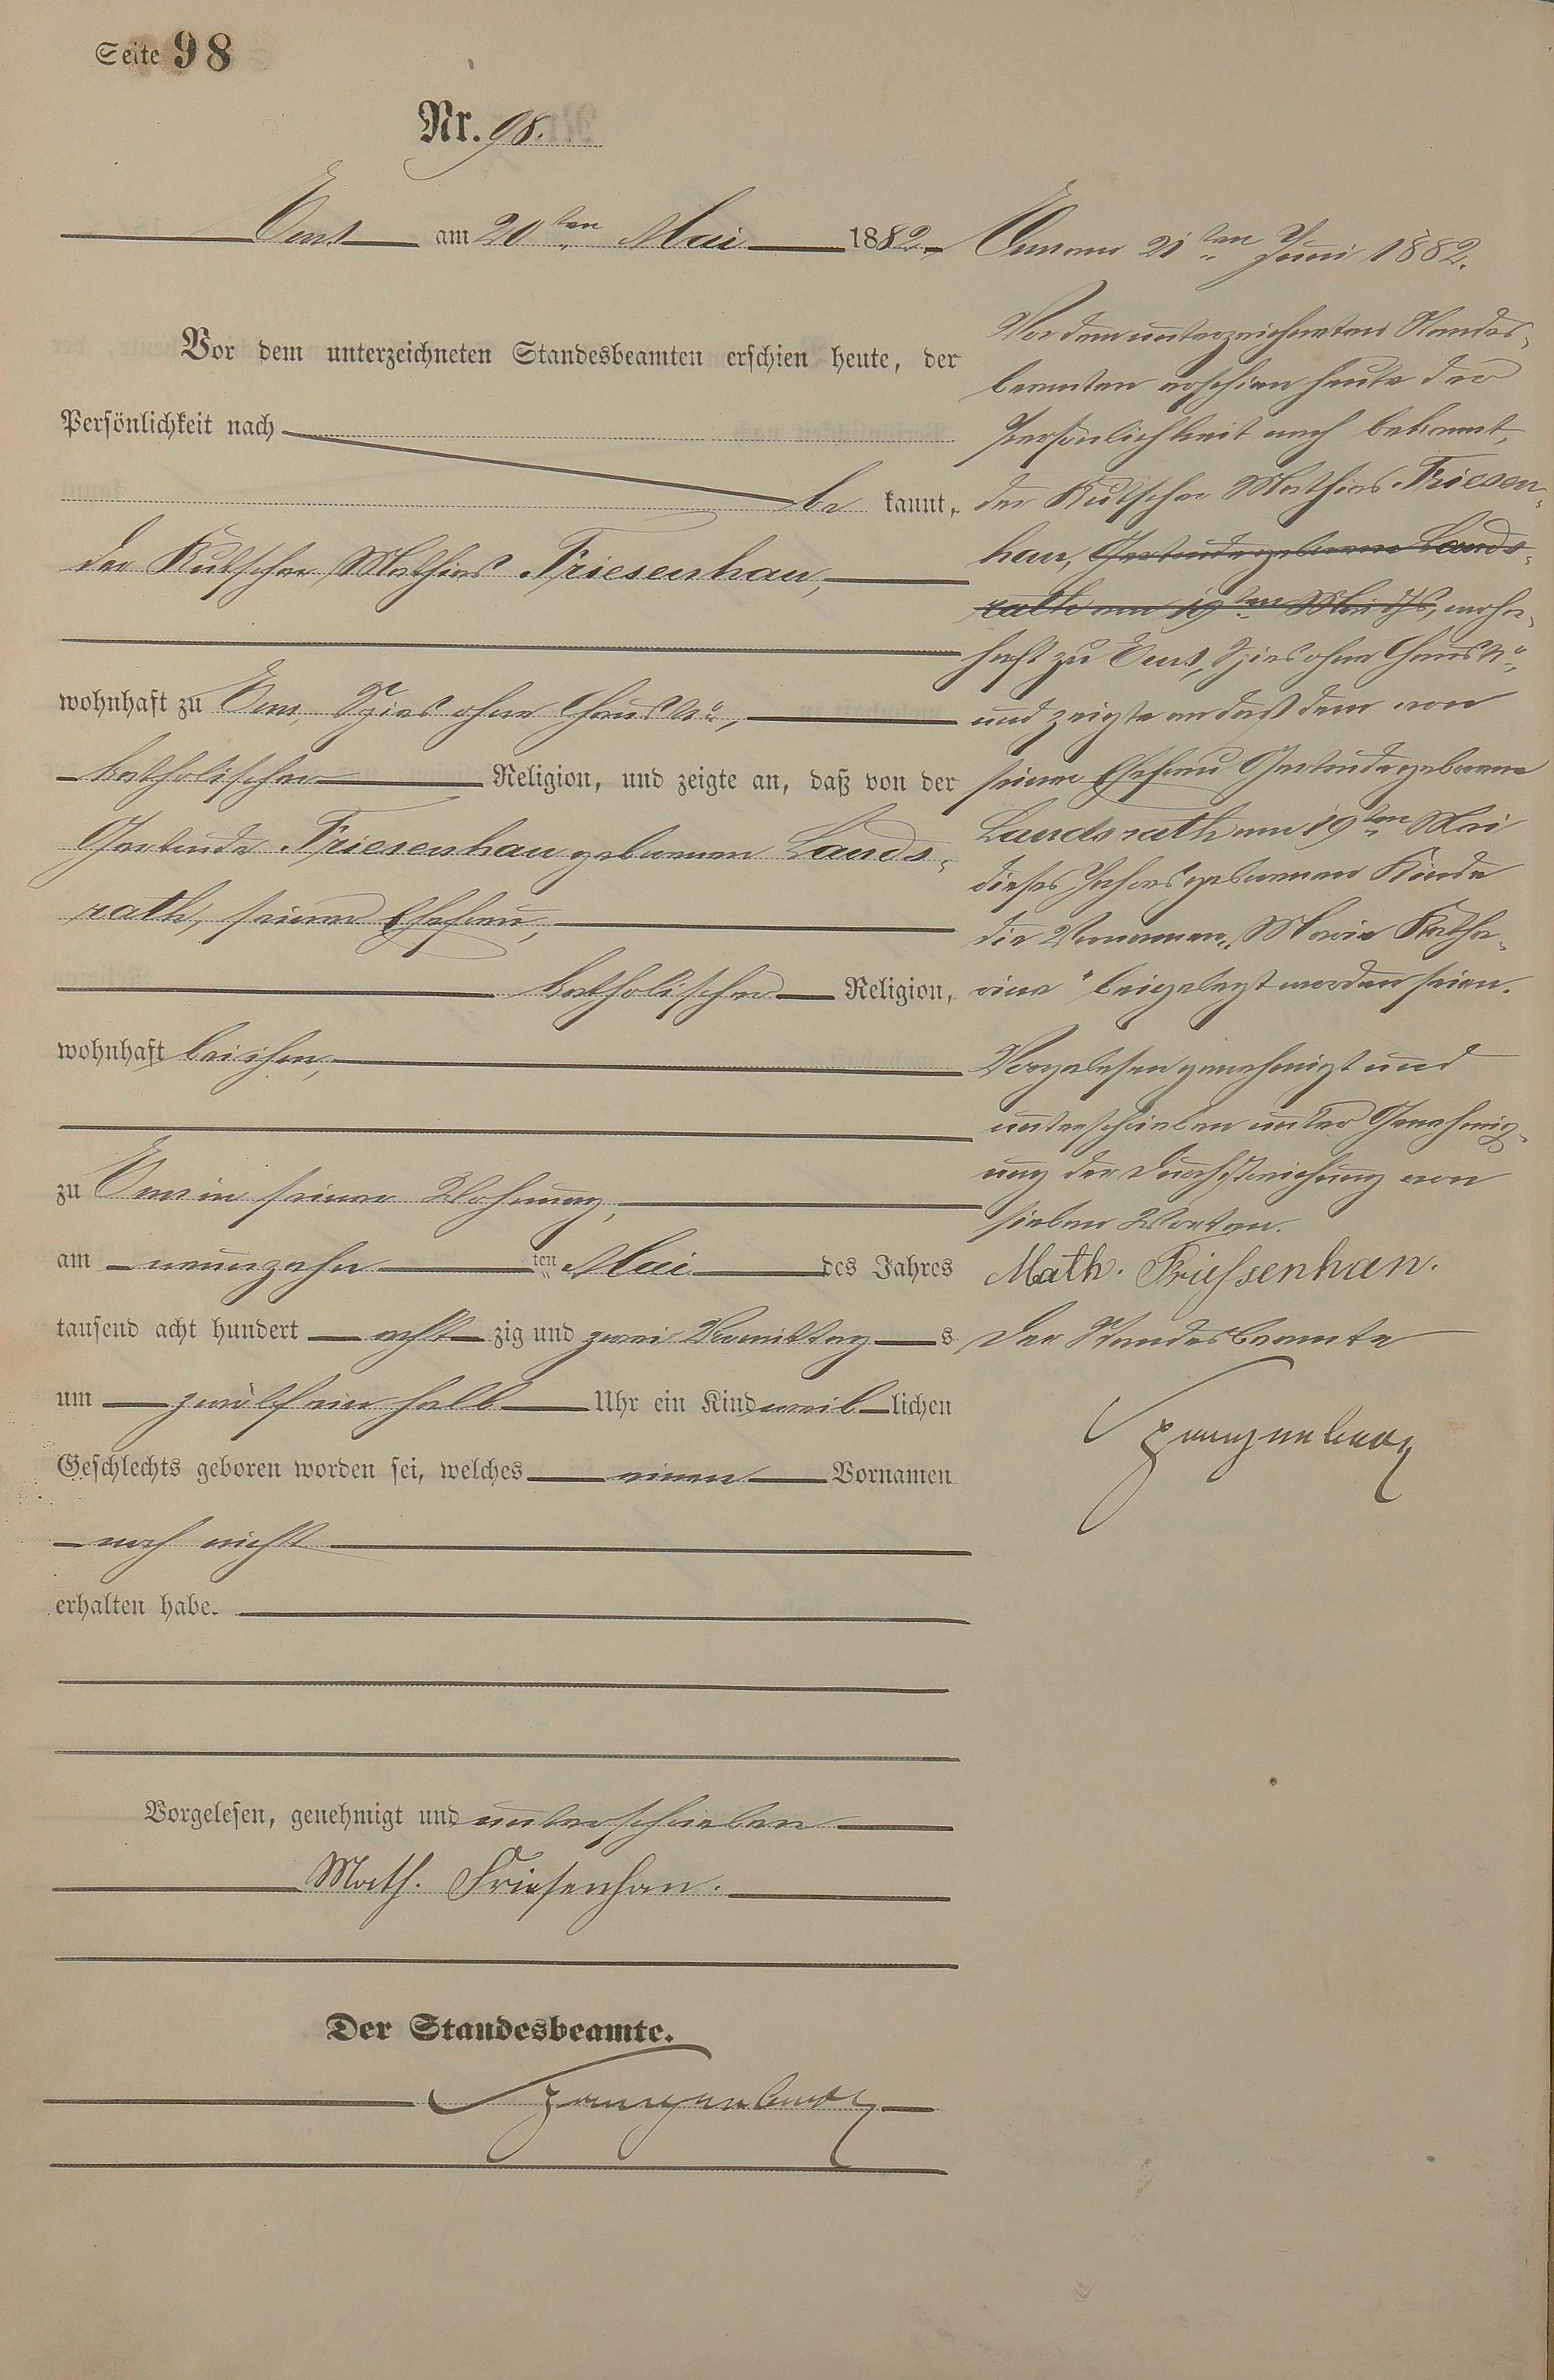 Seite 98
Nr. 98.
Ems am 20ten Mai 1882
Vor dem unterzeichneten Standesbeamten erschien heute, der
Persönlichkeit nach
be kannt,
der Kutscher Mathias Friesenhan,
wohnhaft zu Ems, Spies ohne Haus No,
katholischer Religion, und zeigte an, daß von der
Gertrude Friesenhan geborenen Lands-
rath, seiner Ehefrau,
katholischer Religion,
wohnhaft bei ihm,
zu Ems in seiner Wohnung,
am neunzehn ten Mai des Jahres
tausend acht hundert acht zig und zwei Vormittag s
um zwölf ein halb Uhr ein Kind weib lichen
Geschlechts geboren worden sei, welches einen Vornamen
noch nicht
erhalten habe.
Vorgelesen, genehmigt und unterschrieben
Math. Friesenhan.
Der Standesbeamte.
Ems am 21ten Juni 1882.
Vor dem unterzeichneten Standes-
beamten erschien heute der
Persönlichkeit nach bekannt,
der Kutscher Mathias Friesen-
han, Gertrude geborene Lands-
rath am 19ten Mai ds, wohn-
haft zu Ems, Spies ohne Haus No,
und zeigte an daß dem von
seiner Ehefrau Gertrude geborene
Landsrath am 19ten Mai
dieses Jahres geborenen Kinde
die Vornamen „Maria Katha-
rina" beigelegt worden seien.
Vorgelesen genehmigt und
unterschrieben unter Genehmig-
ung der Durchstreichung von
sieben Worten.
Math. Friessenhan.
Der Standesbeamte